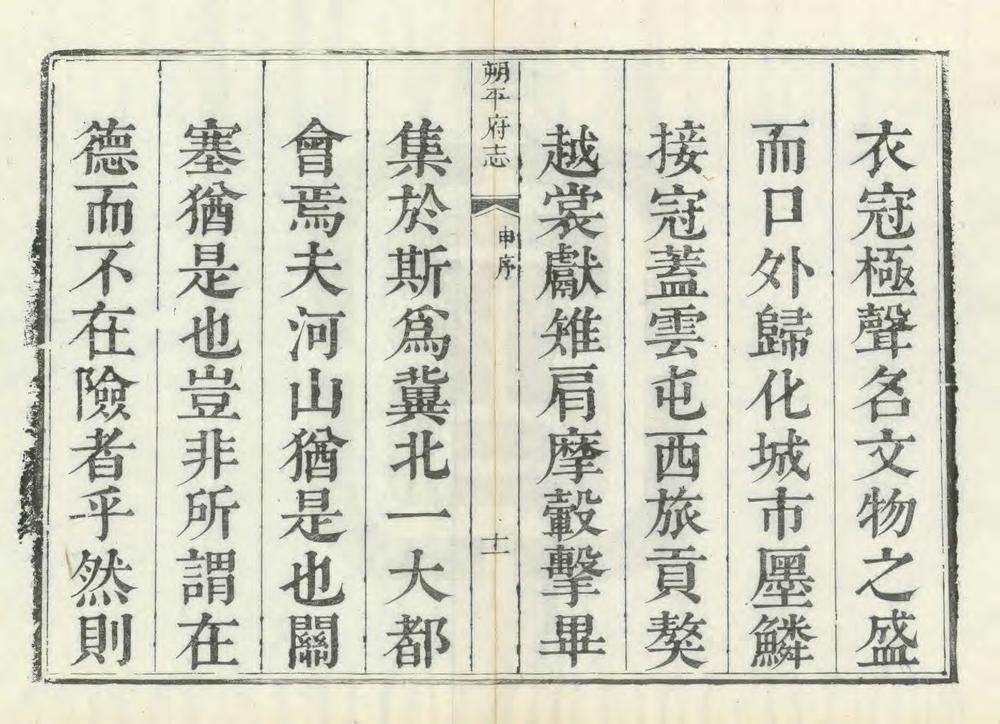 衣冠極聲名文物之盛
而口外歸化城市廛鱗
接冠蓋雲屯西旅貢獒
越裳獻雉肩摩轂擊畢
朔平府志
申序
十一
集於斯爲冀北一大都
會焉夫河山猶是也關
塞猶是也豈非所謂在
德而不在險者乎然則